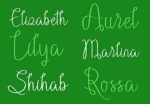 Elizabeth Aurel
Lilya Martina
Shihab Rossa